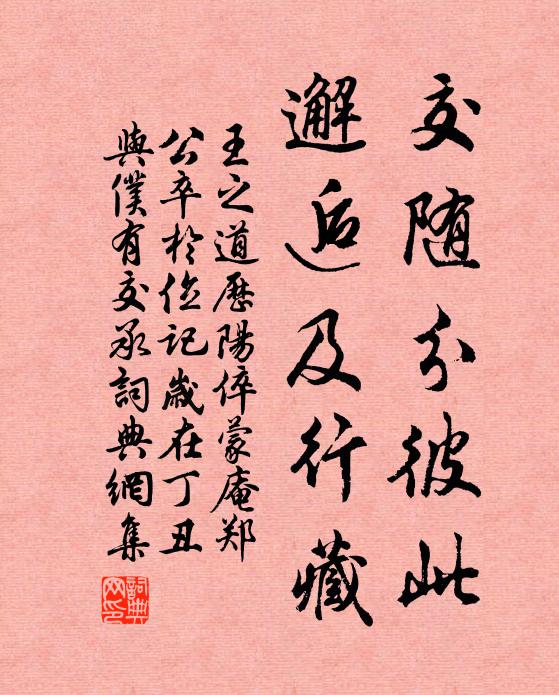 交随分彼此
邂逅及行藏
王之道歷陽倅蒙庵郑
公卒於位記歲在丁丑
與僕有交承詞典網集
詞典網印